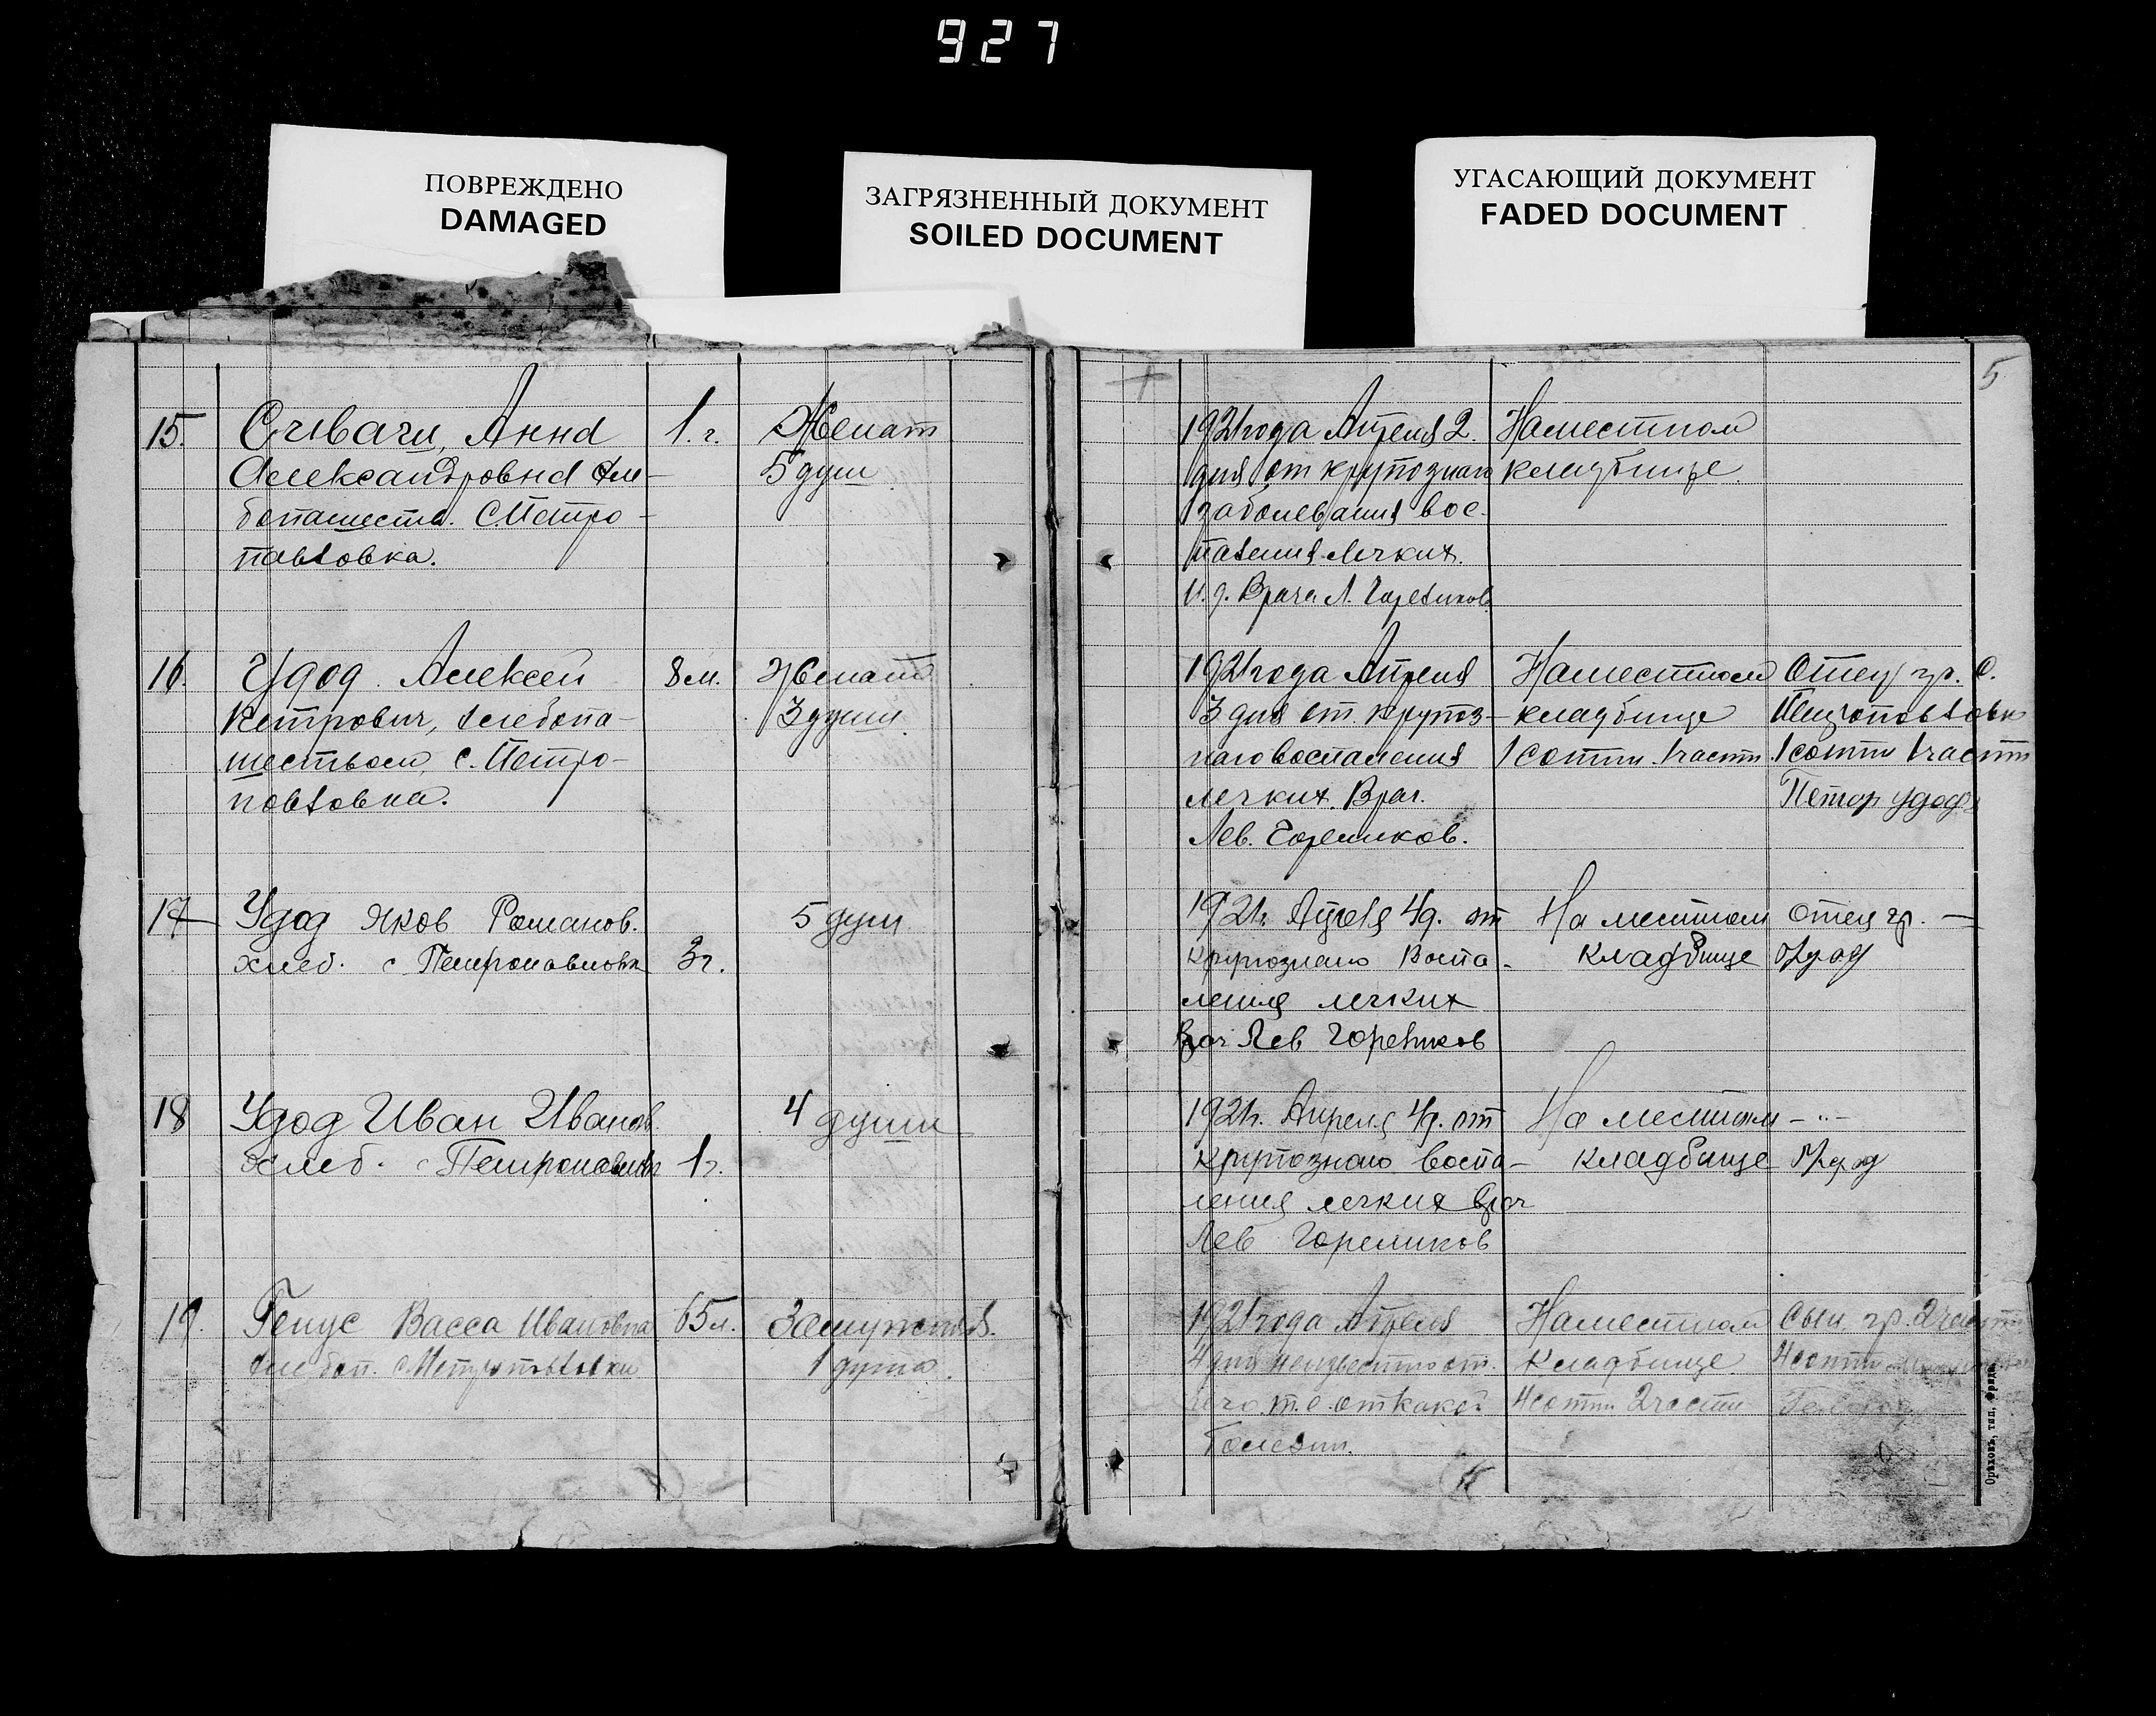 927
ПОВРЕЖДЕНО
DAMAGED
ЗАГРЯЗНЕННЫЙ ДОКУМЕНТ
SOILED DOCUMENT
УГАСАЮЩИЙ ДОКУМЕНТ
FADED DOCUMENT
5
15. Анна 1.г. Женат
Александровна хле-
5 душ
бопашеств. С Петро-
павловка.
1921 года Апреля 2.
дня от крупознаго
заболевания вос-
паления легких.
И.д. Врача Л. Гореликов
На местном
кладбище.
16. Удод Алексей 8 м. Женат
Петрович, хлебопа-
3 души
шеством, с. Петро-
повловка.
1921 года Апреля
3 дня от крупоз-
наго воспаления
легких. Врач.
Лев. Гореликов.
На местном
кладбище
1 сотни 1 части
Отец гр. С.
Петроповловки
1 сотни 1 части
Петор Удод
17 Удод Яков Романов. 5 душ
хлеб. с Петропавловк 3 г.
1921 г. Апреля 4 д. от
крупознаго воспа-
ления легких
врач Лев Гореликов
На местном
кладбище
отец гр. —
Удод
18 Удод Иван Иванов. 4 души
хлеб. с Петропавловк 1 г.
1921 г. Апреля 4 д. от
крупознаго воспа-
ления легких врач
Лев Гореликов
На местном
кладбище
- " -
Удод
19. Генус Васса Ивановна 65 л. Замужняя.
хлебоп. с. Петроповловки 1 душа.
1921 года Апреля
4 дня неизвестно от
чего т.е. от какой
болезни.
На местном
кладбище.
4 сотни 2 части
Сын гр. 2 части
4 сотни
Орѣховъ, тип. Фридъ